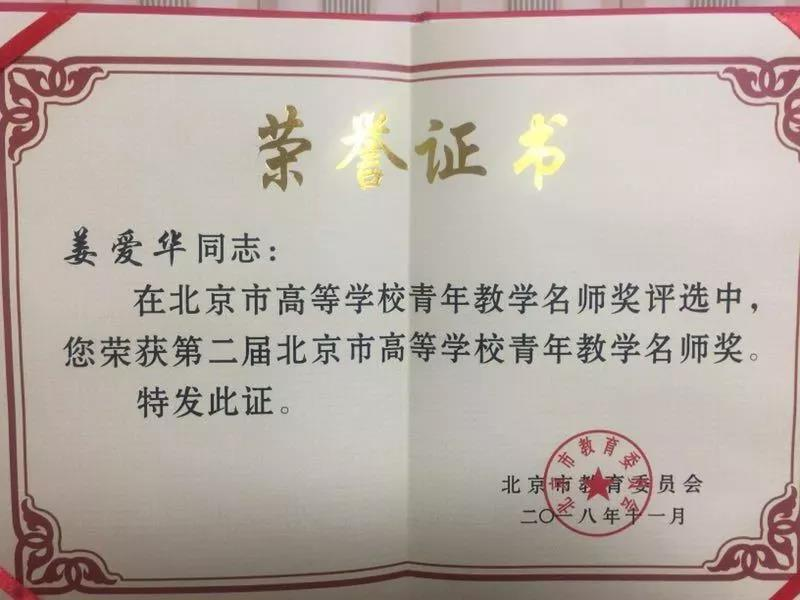 荣誉证书
姜爱华同志：
在北京市高等学校青年教学名师奖评选中，
您荣获第二届北京市高等学校青年教学名师奖。
特发此证。
北京市教育委员会
北京市教育委员会
二〇一八年十一月